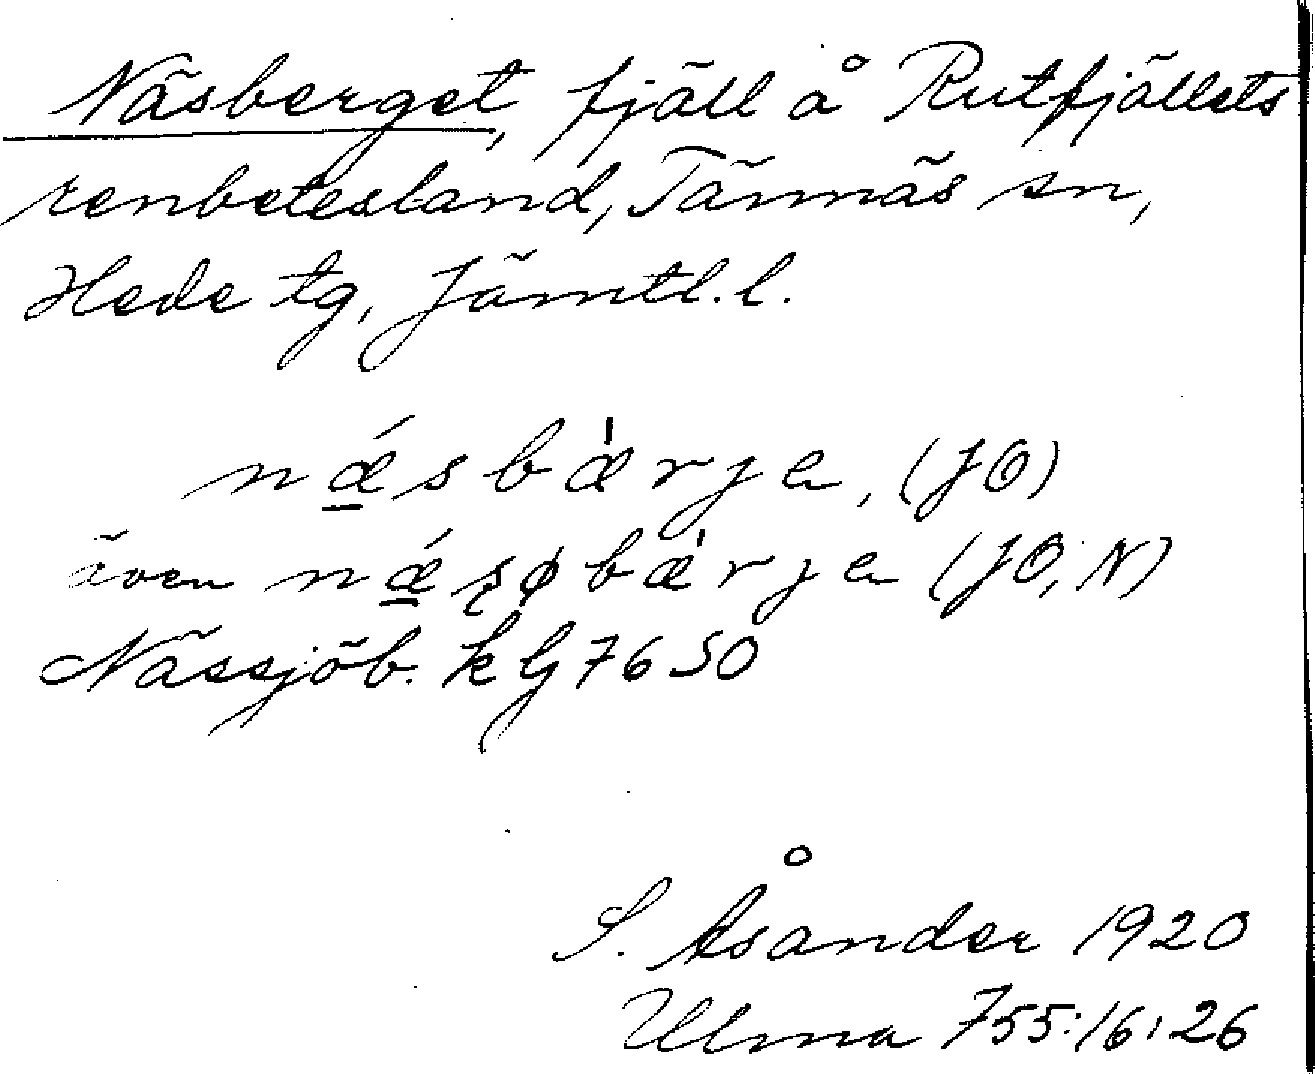 Näsberget, fjäll å Rutfjällets
renbetesland, Tännäs sn,
Hede tg, Jämtl. l.
nǽ̱sbæ̍rja, (JO)
även nǽ̱ʂøbæ̍rja (JO, N)
Nässjöb. k Lj 7650
S. Åsander 1920
Ulma 755:16, 26